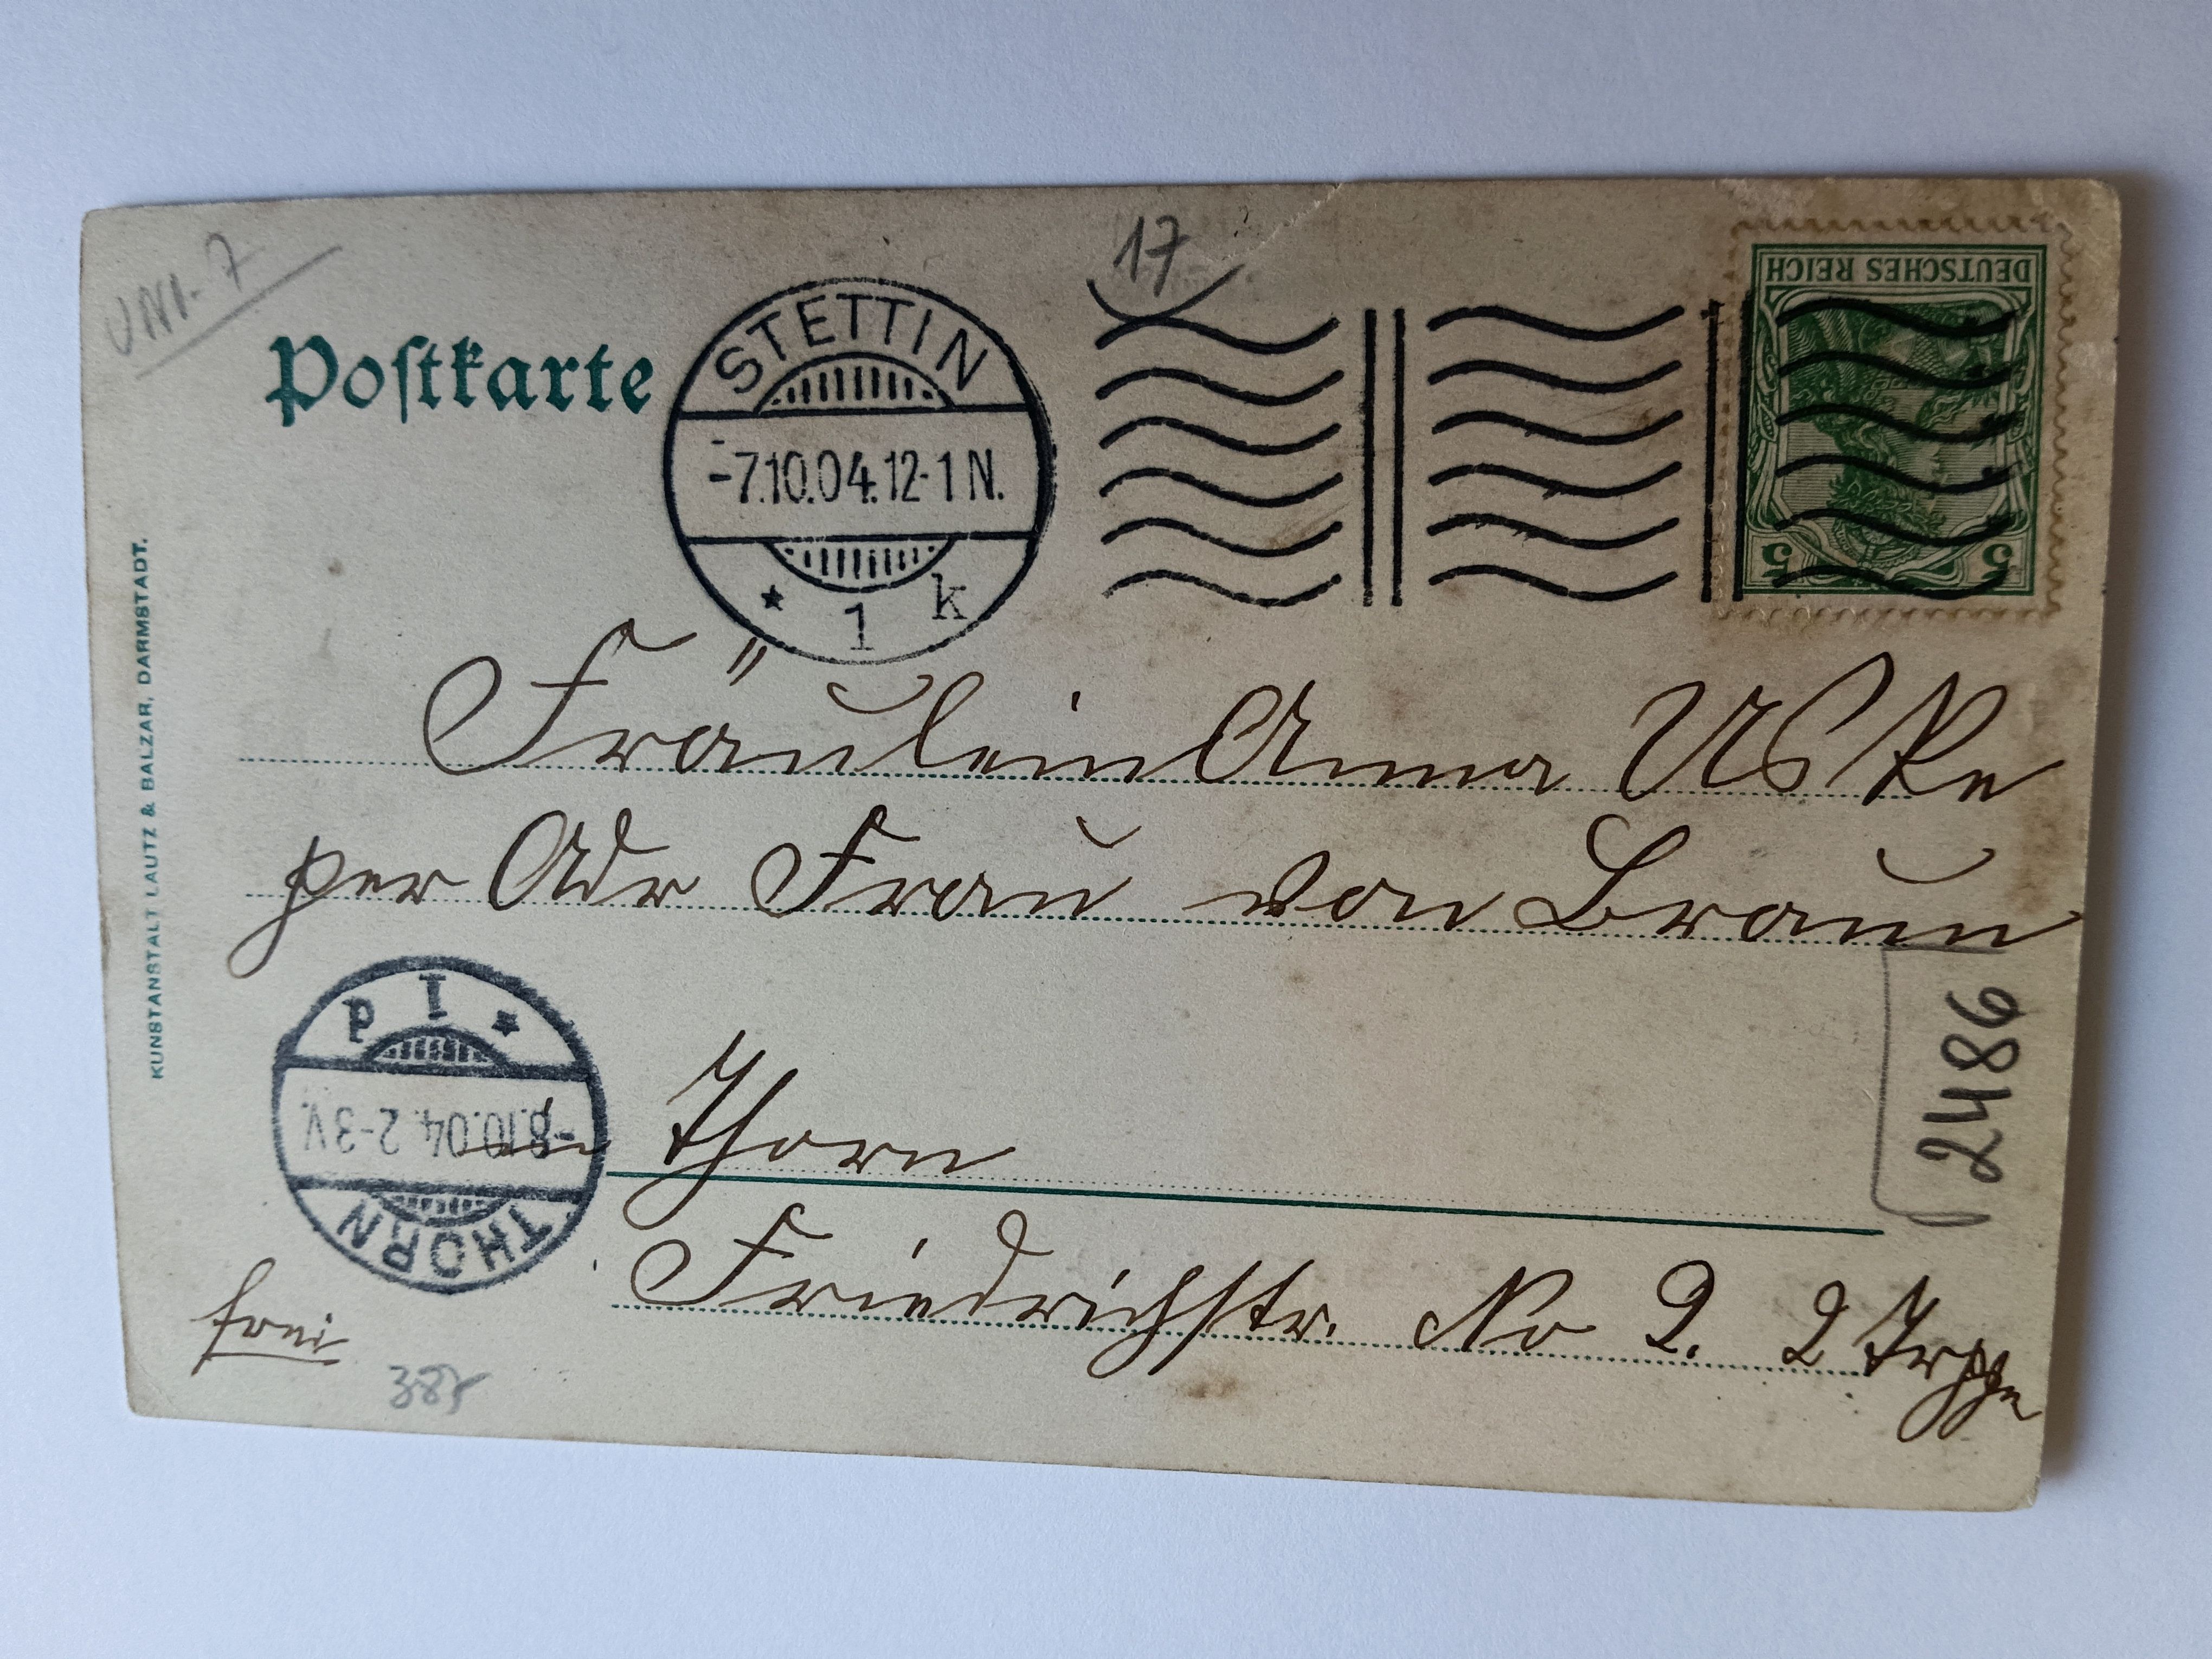 UNI-7
17
DEUTSCHES REICH
5 5
Postkarte
STETTIN
-7.10.04.12-1 N.
* 1 k
KUNSTANSTALT LAUTZ & BALZAR, DARMSTADT.
Fräulein Anna
per Adr Frau von Braun
p I *
-8.10.04. 2-3 V.
THORN
in Thorn
2486
Friedrichstr. No 2. 2 Trppe
frei